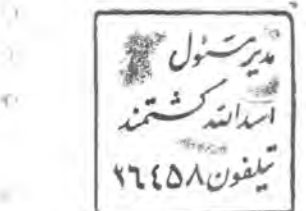 مدیر مسئول
اسدالله کشتمند
تیلفون ۲٦٤۵۸